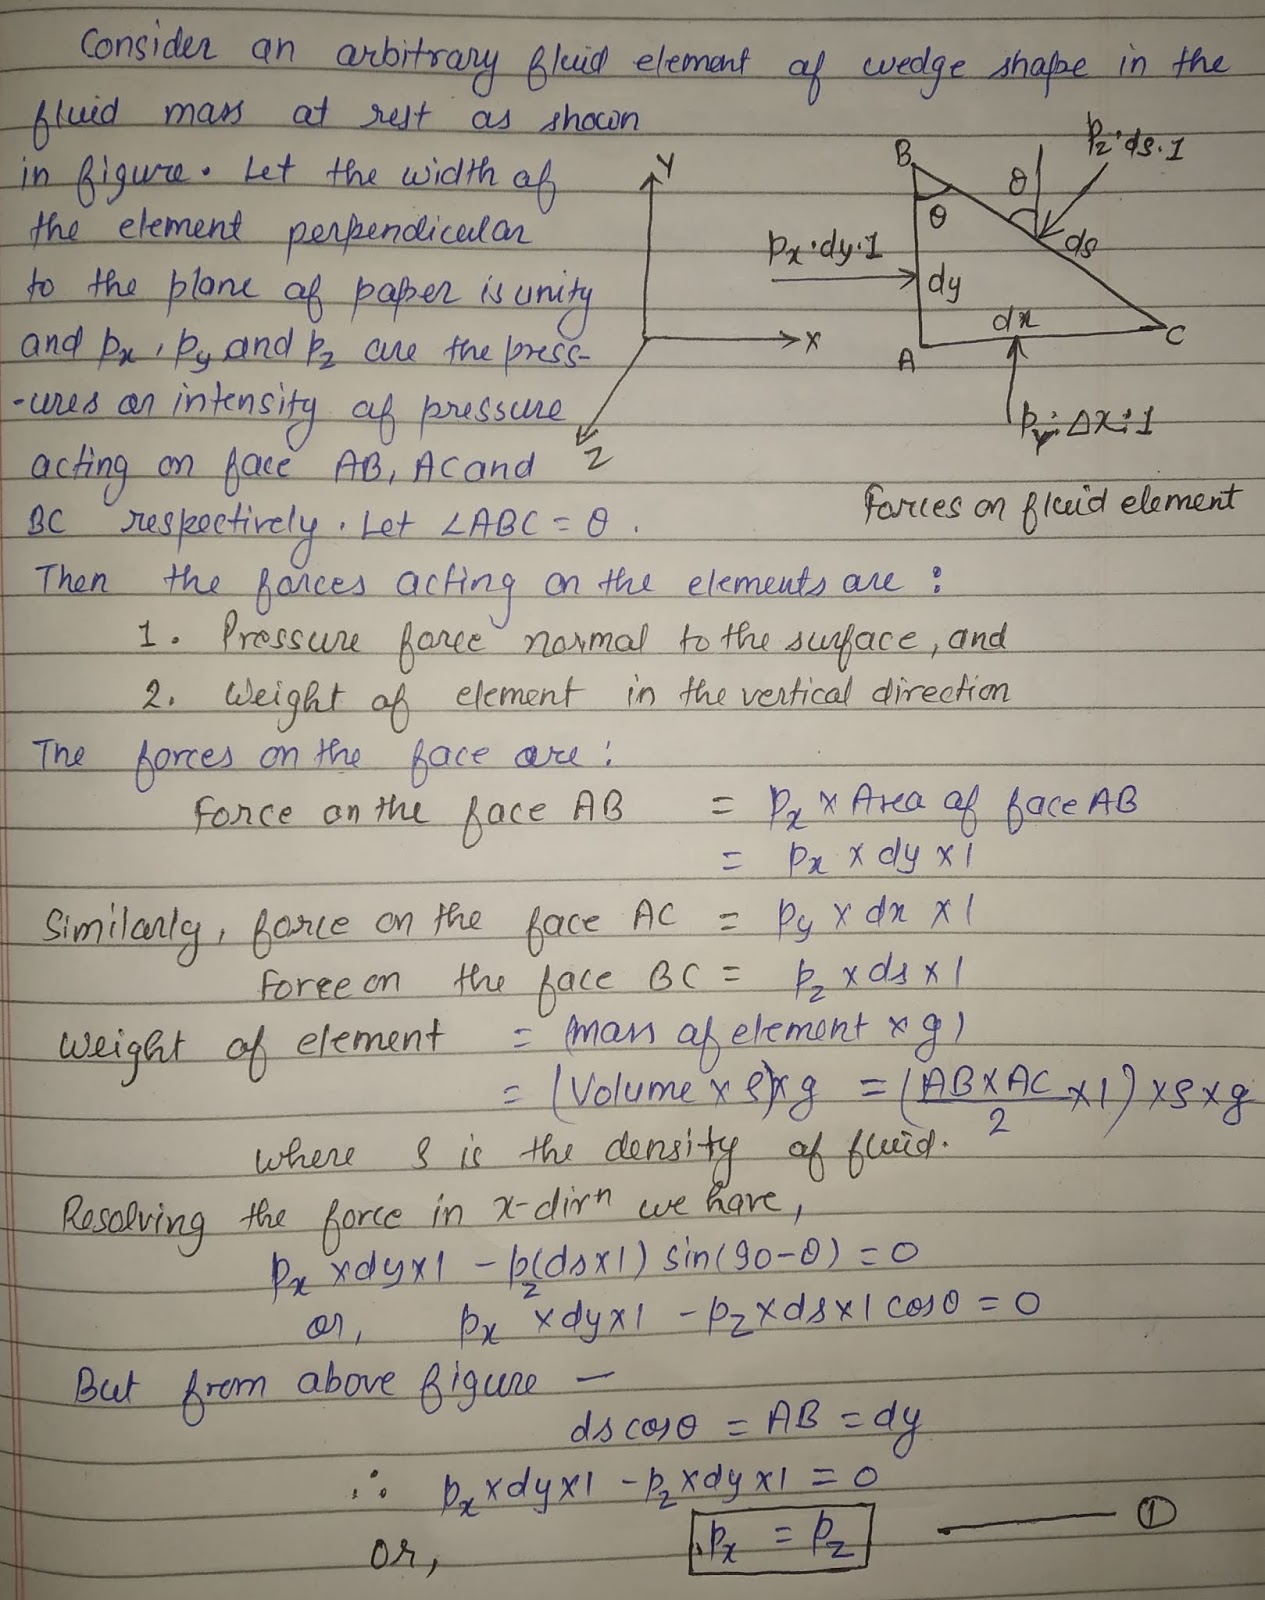 Consider an arbitrary fluid element of wedge shape in the
fluid mass at rest as shown
in figure. Let the width of
the element perpendicular
to the plane of paper is unity
and px, py and pz are the press-
-ures or intensity of pressure
acting on face AB, AC and
BC respectively. Let ∠ABC = θ.
Y
X
Z
B
θ
θ
pz·ds·1
ds
px·dy·1
dy
dx
A
C
py·Δx·1
Forces on fluid element
Then the forces acting on the elements are :
1. Pressure force normal to the surface, and
2. Weight of element in the vertical direction
The forces on the face are :
Force on the face AB = px × Area of face AB
= px × dy × 1
Similarly, force on the face AC = py × dx × 1
Force on the face BC = pz × ds × 1
Weight of element = (mass of element × g)
= (Volume × ρ) × g = (AB×AC/2 × 1) × ρ × g
where ρ is the density of fluid.
Resolving the force in x-dirn we have,
px × dy × 1 - pz(ds×1) sin(90-θ) = 0
or, px × dy × 1 - pz × ds × 1 cosθ = 0
But from above figure —
ds cosθ = AB = dy
∴ px × dy × 1 - pz × dy × 1 = 0
or, px = pz — ①